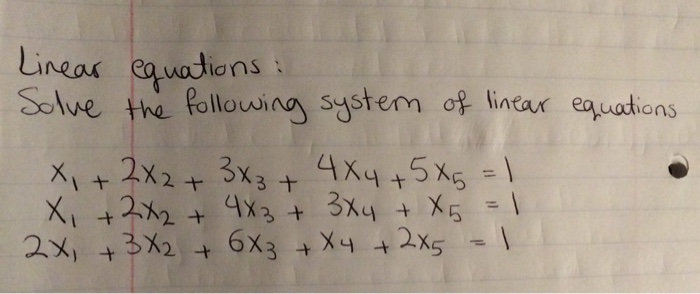 Linear equations :
Solve the following system of linear equations
x₁ + 2x₂ + 3x₃ + 4x₄ + 5x₅ = 1
x₁ + 2x₂ + 4x₃ + 3x₄ + x₅ = 1
2x₁ + 3x₂ + 6x₃ + x₄ + 2x₅ = 1